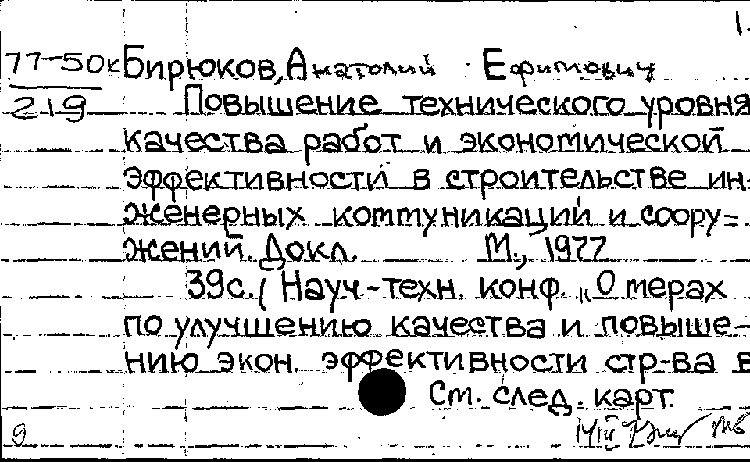 1.
77-50к Бирюков, Анатолий Ефимович
219 Повышение технического уровня
качества работ и экономической
эффективности в строительстве ин-
женерных коммуникаций и соору=
жений. Докл. М., 1977
39с. ( Науч-техн. конф. „О мерах
по улучшению качества и повыше-
нию экон. эффективности стр-ва в
См. след. карт.
9